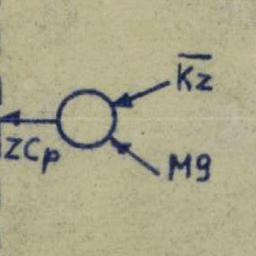 K̅z̅
ZCp
M9